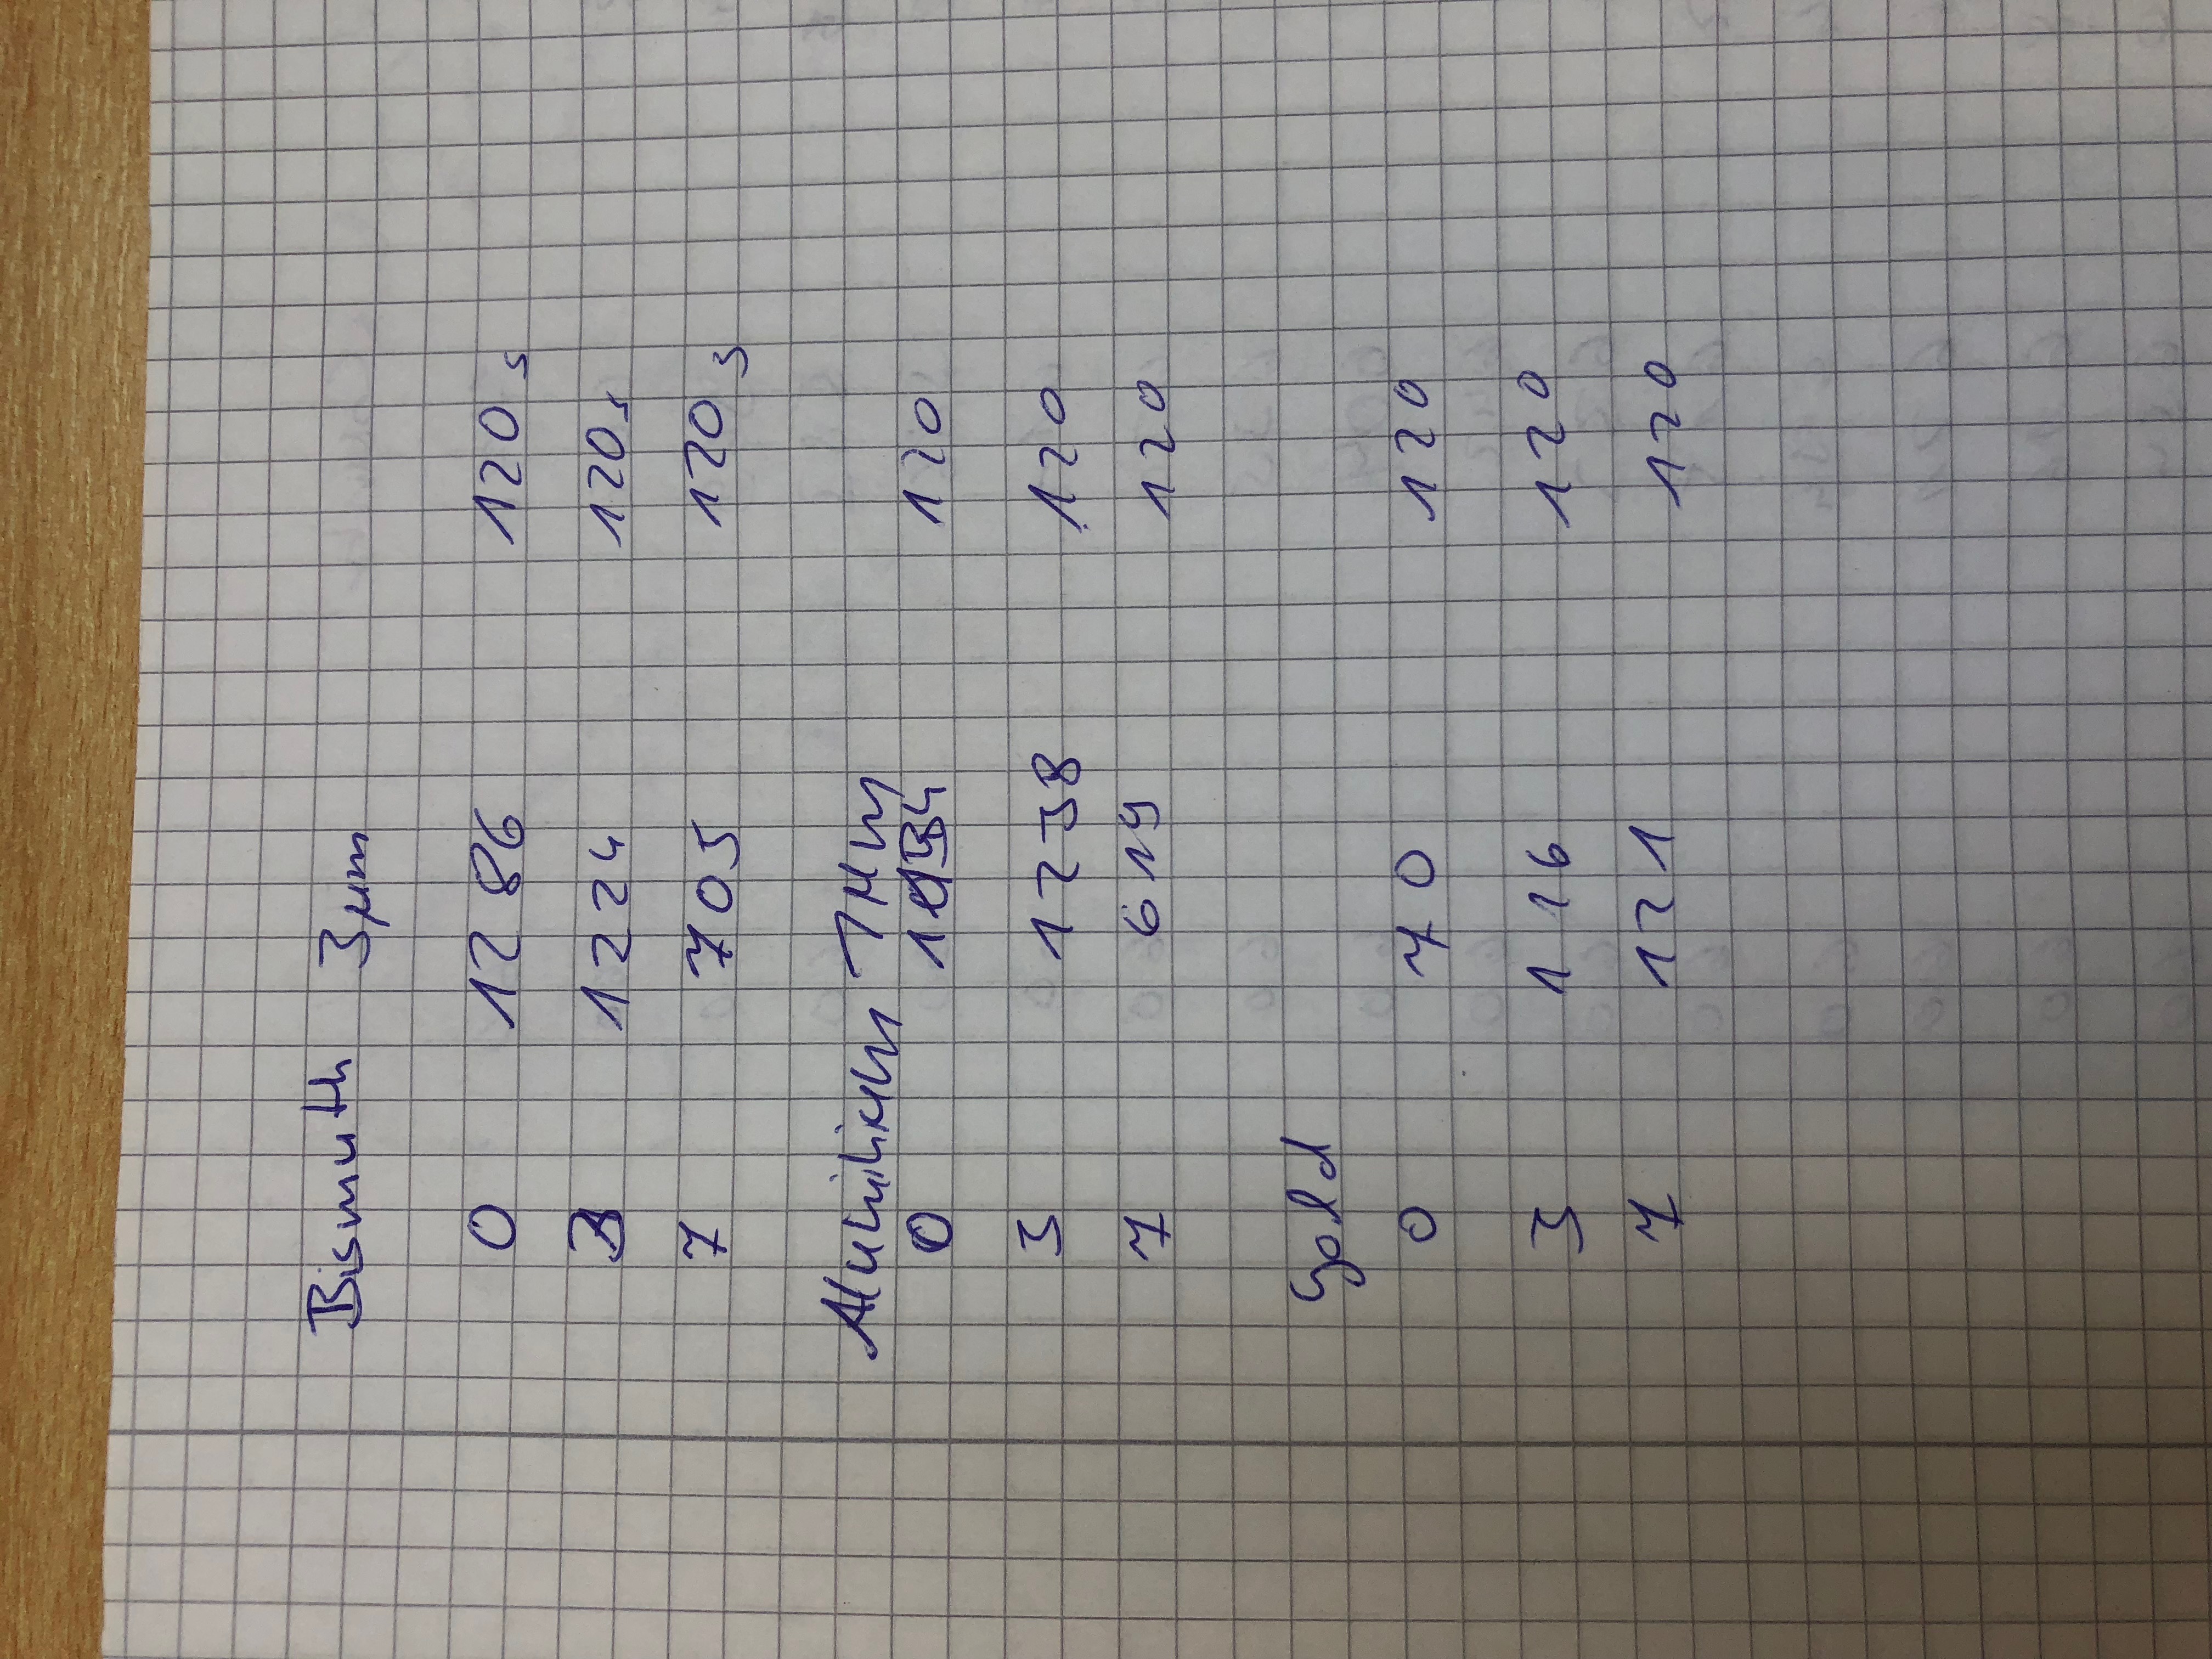 Bismuth 3µm
0 1286 120 s
1224 120 s
7 705 120 s
Aluminium 1µm
0 120
3 1238 120
7 619 120
Gold
0 70 120
3 116 120
7 121 120